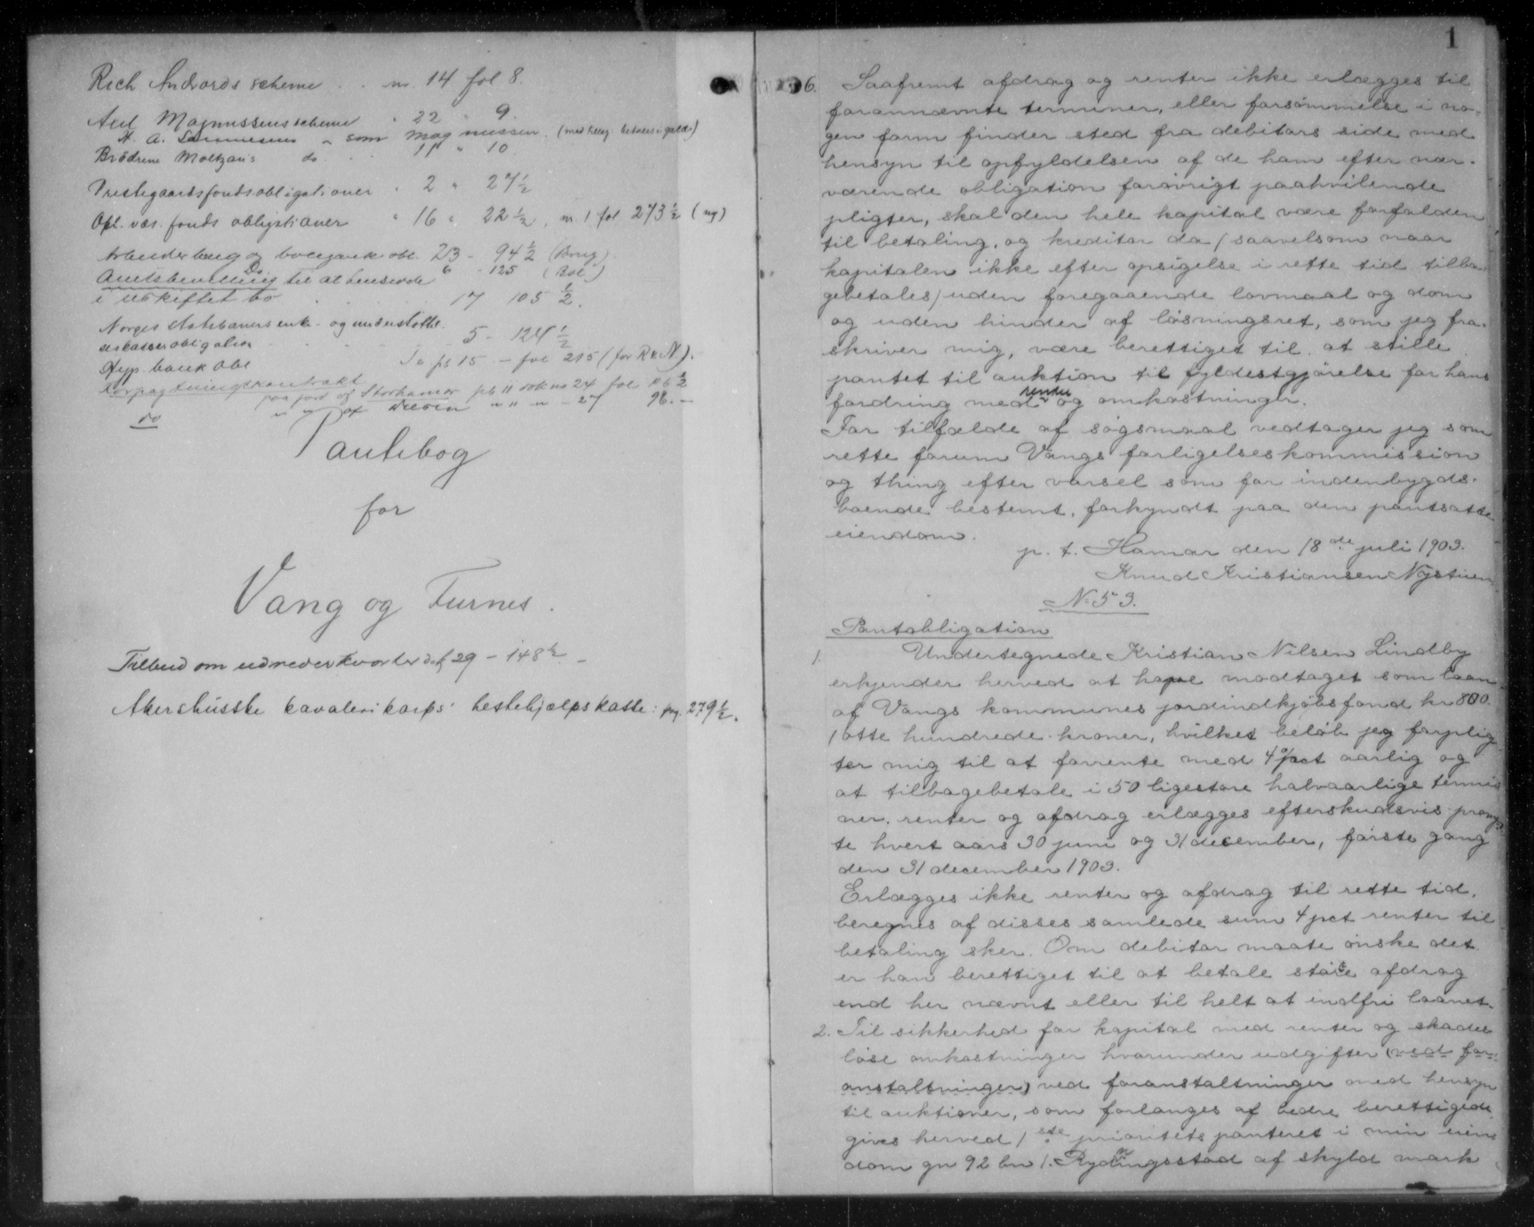 Rich Andvords scheme . . nr. 14 fol 8.
Axel Magnussens scheme " 22 " 9.
A. som Magnussen.
Brödrene Moltzau's do. . . 11 " 10
Prestegaardsfondsobligationer " 2 " 27½
Opl. væs. fonds obligationer " 16 " 22½, nr. 1 fol 273½ (ny)
Arbeiderbrug og boligbank obl. 23 - 94½ (Brug)
Do 6 - 125 (Bol.)
Amtsbevilling til at hensidde
i uskiftet bo . . . 17 105½.
Norges Statsbaners enke- og understøttel-
seskasseobligation . . . 5 - 124½
Hyp. bank obl pk 15 - fol 215 (for R. N).
Forpagtningskontrakt
paa jord og Storhamar pk 11 24 fol 86½
do " " " " " - 27 96. -
Pantebog
for
Vang og Furnes.
Tilbud om udrederkvarter pk 29 - 148½ -
Akershusske kavalerikorps' hestehjælpskasse: pg. 279½.
1
6. Saafremt afdrag og renter ikke erlægges til
forannævnte terminer, eller forsømmelse i no-
gen form finder sted fra debitors side med
hensyn til opfyldelsen af de ham efter nær-
værende obligation forøvrigt paahvilende
pligter, skal den hele kapital være forfalden
til betaling, og kreditor da (saavelsom naar
kapitalen ikke efter opsigelse i rette tid tilba-
gebetales) uden foregaaende lovmaal og dom
og uden hinder af løsningsret, som jeg fra-
skriver mig, være berettiget til at stille
pantet til auktion til fyldestgjørelse for hans
fordring med renter og omkostninger.
For tilfælde af søgsmaal vedtager jeg som
rette forum Vangs forligelseskommission
og thing efter varsel som for indenbygds-
boende bestemt, forkyndt paa den pantsatte
eiendom.
p. t. Hamar den 18de juli 1903.
Knud Kristiansen Nystuen
No 53.
Pantobligation
1. Undertegnede Kristian Nilsen Lindby
erkjender herved at have modtaget som laan
af Vangs kommunes jordindkjøbsfond kr 800.
(otte hundrede kroner, hvilket beløb jeg forplig-
ter mig til at forrente med 4 pct aarlig og
at tilbagebetale i 50 ligestore halvaarlige termi-
ner. renter og afdrag erlægges efterskudsvis promp-
te hvert aars 30 juni og 31 december, første gang
den 31 december 1903.
Erlægges ikke renter og afdrag til rette tid,
beregnes af disses samlede sum 4 pct renter til
betaling sker. Om debitor maate ønske det
er han berettiget til at betale større afdrag
end her nævnt eller til helt at indfri laanet.
2. Til sikkerhed for kapital med renter og skades-
løse omkostninger hvorunder udgifter (ved for-
anstaltninger) ved foranstaltninger med hensyn
til auktioner, som forlanges af bedre berettigede
gives herved 1ste prioritets panteret i min eien-
dom gn 92 bn 1. Rydningsstad af skyld mark